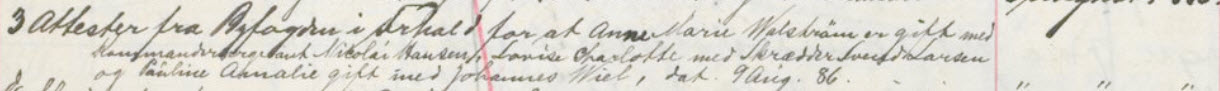 3 Attester fra Byfogden i Frhald for at Anne Marie Walström er gift med
Kommandersergeant Nicolai Hansen, Lovise Charlotte med Skrædder Svend Larsen
og Pauline Annalie gift med Johannes Wiel, dat. 9 Aug. 86.
" " "